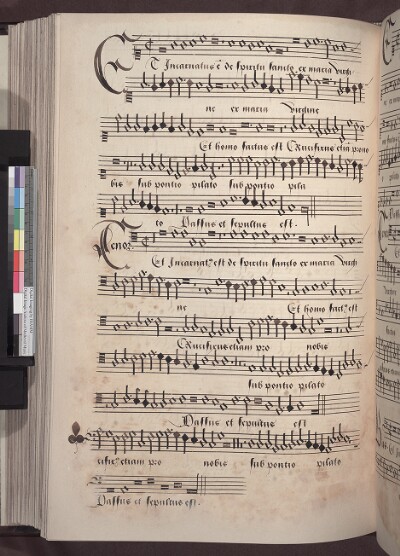 Et Incarnatus ē de spiritu sancto ex maria virgi
ne ex maria virgine
Et homo factus est Crucifixus etiā pro no
bis sub pontio pilato sub pontio pila
to Passus et sepultus est.
Tenor
Et Incarnatꝰ est de spiritu sancto ex maria virgi
ne Et homo factꝰ est
Crucifixus etiam pro nobis
sub pontio pilato
Passus et sepultus est
cifixꝰ etiam pro nobis sub pontio pilato
Passus et sepultus est.